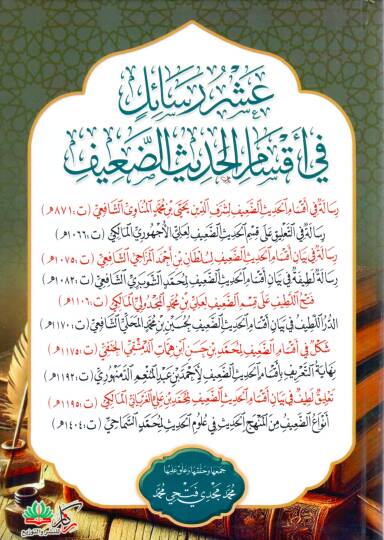 عَشْرُ رَسَائِلٍ
فِي أَقْسَامِ الْحَدِيثِ الضَّعِيفِ
رِسَالَةٌ فِي أَقْسَامِ الْحَدِيثِ الضَّعِيفِ لِشَرَفِ الدِّينِ يَحْيَى بْنِ مُحَمَّدٍ الْمُنَاوِيِّ الشَّافِعِيِّ (ت: ٨٧١هـ)
رِسَالَةٌ فِي التَّعْلِيقِ عَلَى قِسْمِ الْحَدِيثِ الضَّعِيفِ لِعَلِيٍّ الْأُجْهُورِيِّ الْمَالِكِيِّ (ت: ١٠٦٦هـ)
رِسَالَةٌ فِي بَيَانِ أَقْسَامِ الْحَدِيثِ الضَّعِيفِ لِسُلْطَانَ بْنِ أَحْمَدَ الْمَزَّاحِيِّ الشَّافِعِيِّ (ت: ١٠٧٥هـ)
رِسَالَةٌ لَطِيفَةٌ فِي بَيَانِ أَقْسَامِ الْحَدِيثِ الضَّعِيفِ لِمُحَمَّدٍ الشَّوْبَرِيِّ الشَّافِعِيِّ (ت: ١٠٨٢هـ)
فَتْحُ اللَّطِيفِ عَلَى قِسْمِ الضَّعِيفِ لِعَلِيِّ بْنِ مُحَمَّدٍ الْمَجْدُولِيِّ الْمَالِكِيِّ (ت: ١١٠٦هـ)
الدُّرُّ اللَّطِيفُ فِي بَيَانِ أَقْسَامِ الْحَدِيثِ الضَّعِيفِ لِحُسَيْنِ بْنِ مُحَمَّدٍ الْمَحَلِّيِّ الشَّافِعِيِّ (ت: ١١٧٠هـ)
شَكْلٌ فِي أَقْسَامِ الضَّعِيفِ لِمُحَمَّدِ بْنِ حَسَنٍ ابْنِ هِمَّاتٍ الدِّمَشْقِيِّ الْحَنَفِيِّ (ت: ١١٧٥هـ)
نِهَايَةُ التَّعْرِيفِ بِأَقْسَامِ الْحَدِيثِ الضَّعِيفِ لِأَحْمَدَ بْنِ عَبْدِ الْمُنْعِمِ الدَّمَنْهُورِيِّ (ت: ١١٩٢هـ)
تَعْلِيقٌ لَطِيفٌ فِي بَيَانِ أَقْسَامِ الْحَدِيثِ الضَّعِيفِ لِمُحَمَّدِ بْنِ عَلِيٍّ الْغَرْيَانِيِّ الْمَالِكِيِّ (ت: ١١٩٥هـ)
أَنْوَاعُ الضَّعِيفِ مِنَ الْمَنْهَجِ الْحَدِيثِ فِي عُلُومِ الْحَدِيثِ لِمُحَمَّدٍ السَّمَاحِيِّ (ت: ١٤٠٤هـ)
جمعها وحققها وعلق عليها
محمد مجدي فتحي محمد
ركاز
للنشر والتوزيع